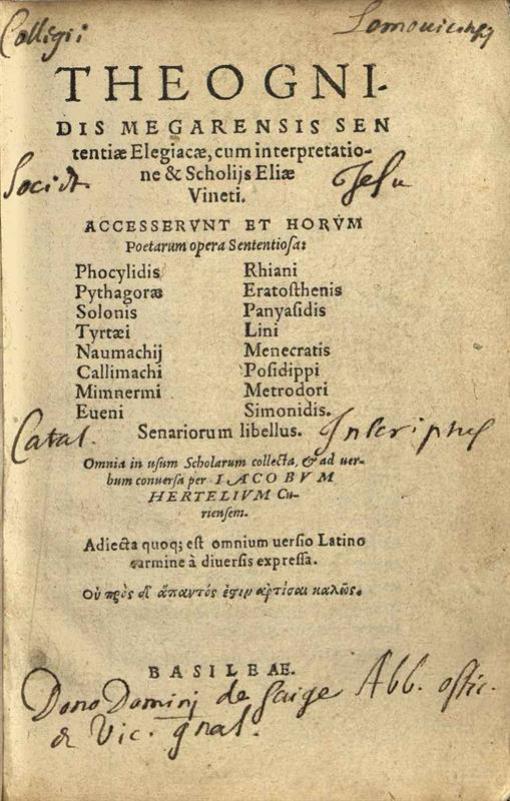 Colligii
THEOGNI-
DIS MEGARENSIS SEN
tentiæ Elegiacæ, cum interpretatio-
ne & Scholijs Eliæ
Societ. Jesu
Vineti.
ACCESSERVNT ET HORVM
Poetarum opera Sententiosa:
Phocylidis Rhiani
Pythagoræ Eratosthenis
Solonis Panyasidis
Tyrtæi Lini
Naumachij Menecratis
Callimachi Posidippi
Mimnermi Metrodori
Eueni Simonidis.
Catal. Inscriptus
Senariorum libellus.
Omnia in usum Scholarum collecta, & ad uer-
bum conuersa per IACOBVM
HERTELIVM Cu-
riensem.
Adiecta quoq; est omnium uersio Latino
carmine à diuersis expressa.
BASILEAE.
Dono Dominj de Abb.
& Vic. gnal.